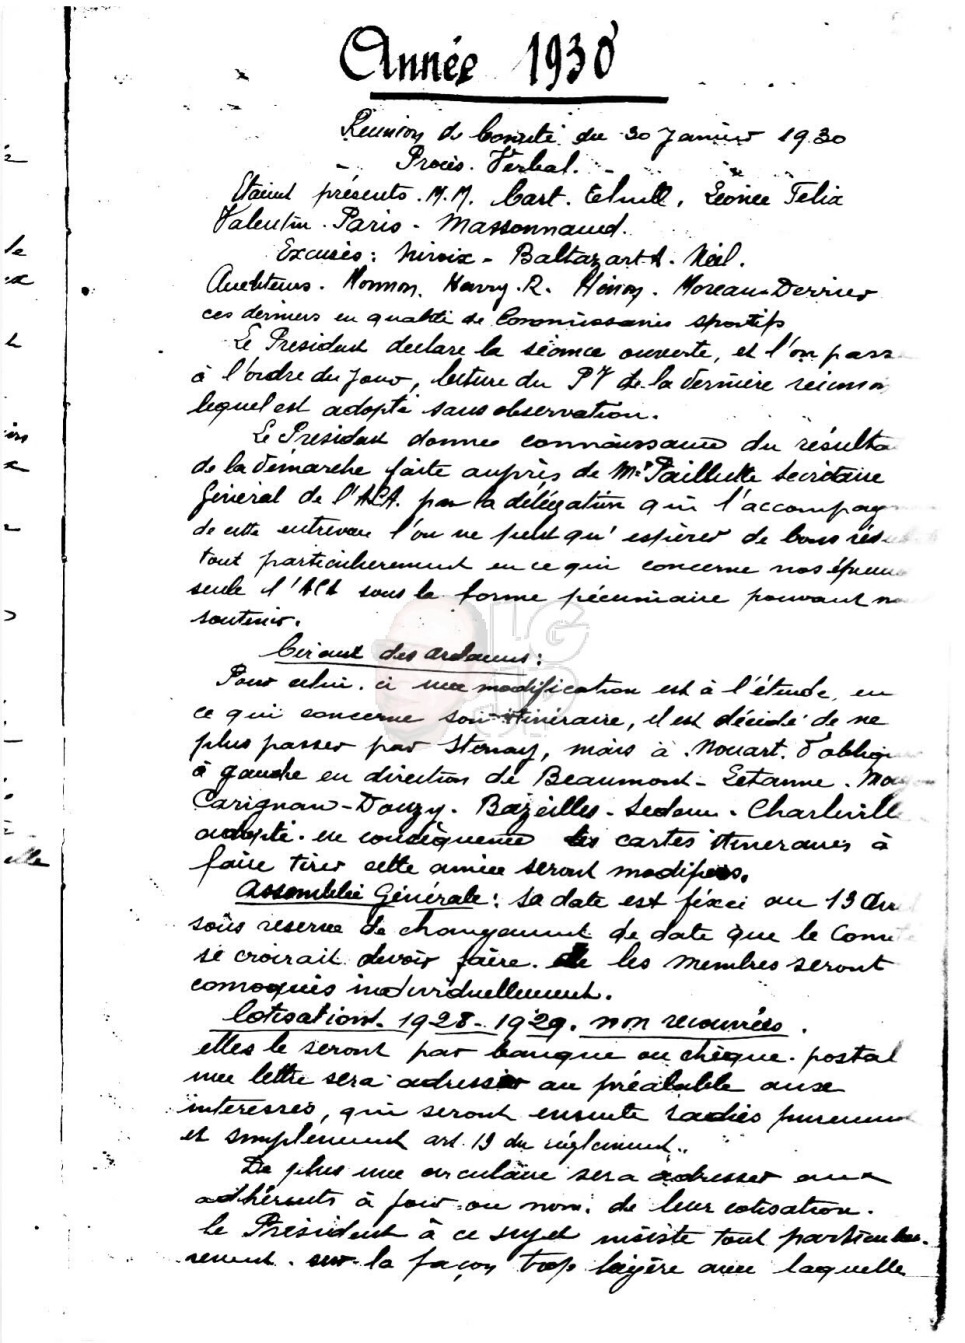 Année 1930
Réunion de Comité du 30 Janvier 1930
Procès. Verbal.
Etaient présents. M.M. Cart. Léonce Felix
Valentin. Paris - Massonnaud.
Excusés: Niroix - Baltazart A. Néel.
Auditeurs. Monnon. Henry. R. Hénon. Moreau-Derrier
ces derniers en qualité de Commissaires sportifs
Le Président declare la séance ouverte, et l'on passe
à l'ordre du jour, lecture du PV de la dernière réunion
lequel est adopté sans observation.
Le Président donne connaissance du résulta
de la démarche faite auprès de Mr Paillette secrétaire
Général de l'ACA. par la délégation qui l'accompag
de cette entrevue l'on ne peut qu'espérer de bons rés
tout particulièrement en ce qui concerne nos épreuv
seule l'ACA sous la forme pécuniaire pouvant n
soutenir.
LGJP
Circuit des Ardennes:
Pour celui. ci une modification est à l'étude, en
ce qui concerne son itinéraire, il est décidé de ne
plus passer par Stenay, mais à Nouart. d'oblique
à gauche en direction de Beaumont - Létanne. Mou
Carignan - Douzy. Bazeilles - Sedan. Charleville
adopté. en conséquence les cartes itineraires à
faire tirer cette année seront modifiées.
Assemblée Générale: sa date est fixée au 13 Avr
sous reserve de changement de date que le Comité
se croirait devoir faire. les membres seront
convoqués individuellement.
Cotisations. 1928-1929. non recouvrées.
elles le seront par banque ou chèque. postal
une lettre sera adressée au préalable aux
interessés, qui seront ensuite radiés purement
et simplement art. 13 du règlement.
De plus une circulaire sera adresser aux
adhérents à jour ou non. de leur cotisation.
le Président à ce sujet insiste tout particulie-
rement. sur la façon trop légère avec laquelle